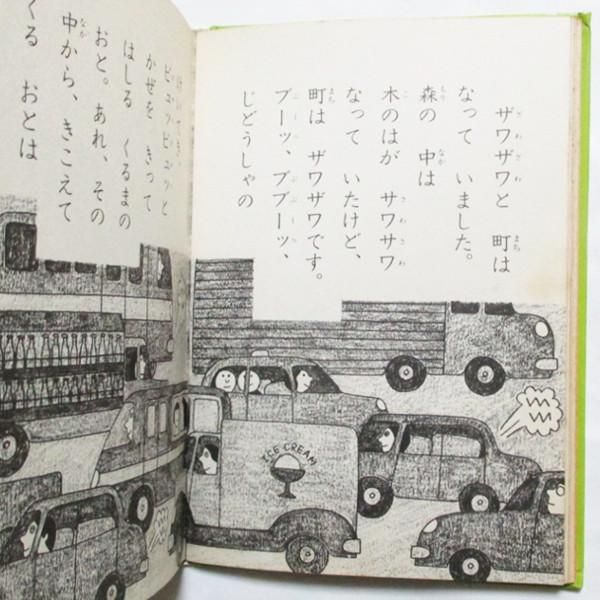 ザワザワと 町は
なって いました。
森の 中は
木のはが サワサワ
なって いたけど、
町は ザワザワです。
ブーッ、ブブーッ、
じどうしゃの
ピュッピュッと
かぜを きって
はしる くるまの
おと。あれ、その
中から、きこえて
くる おとは
ICE CREAM